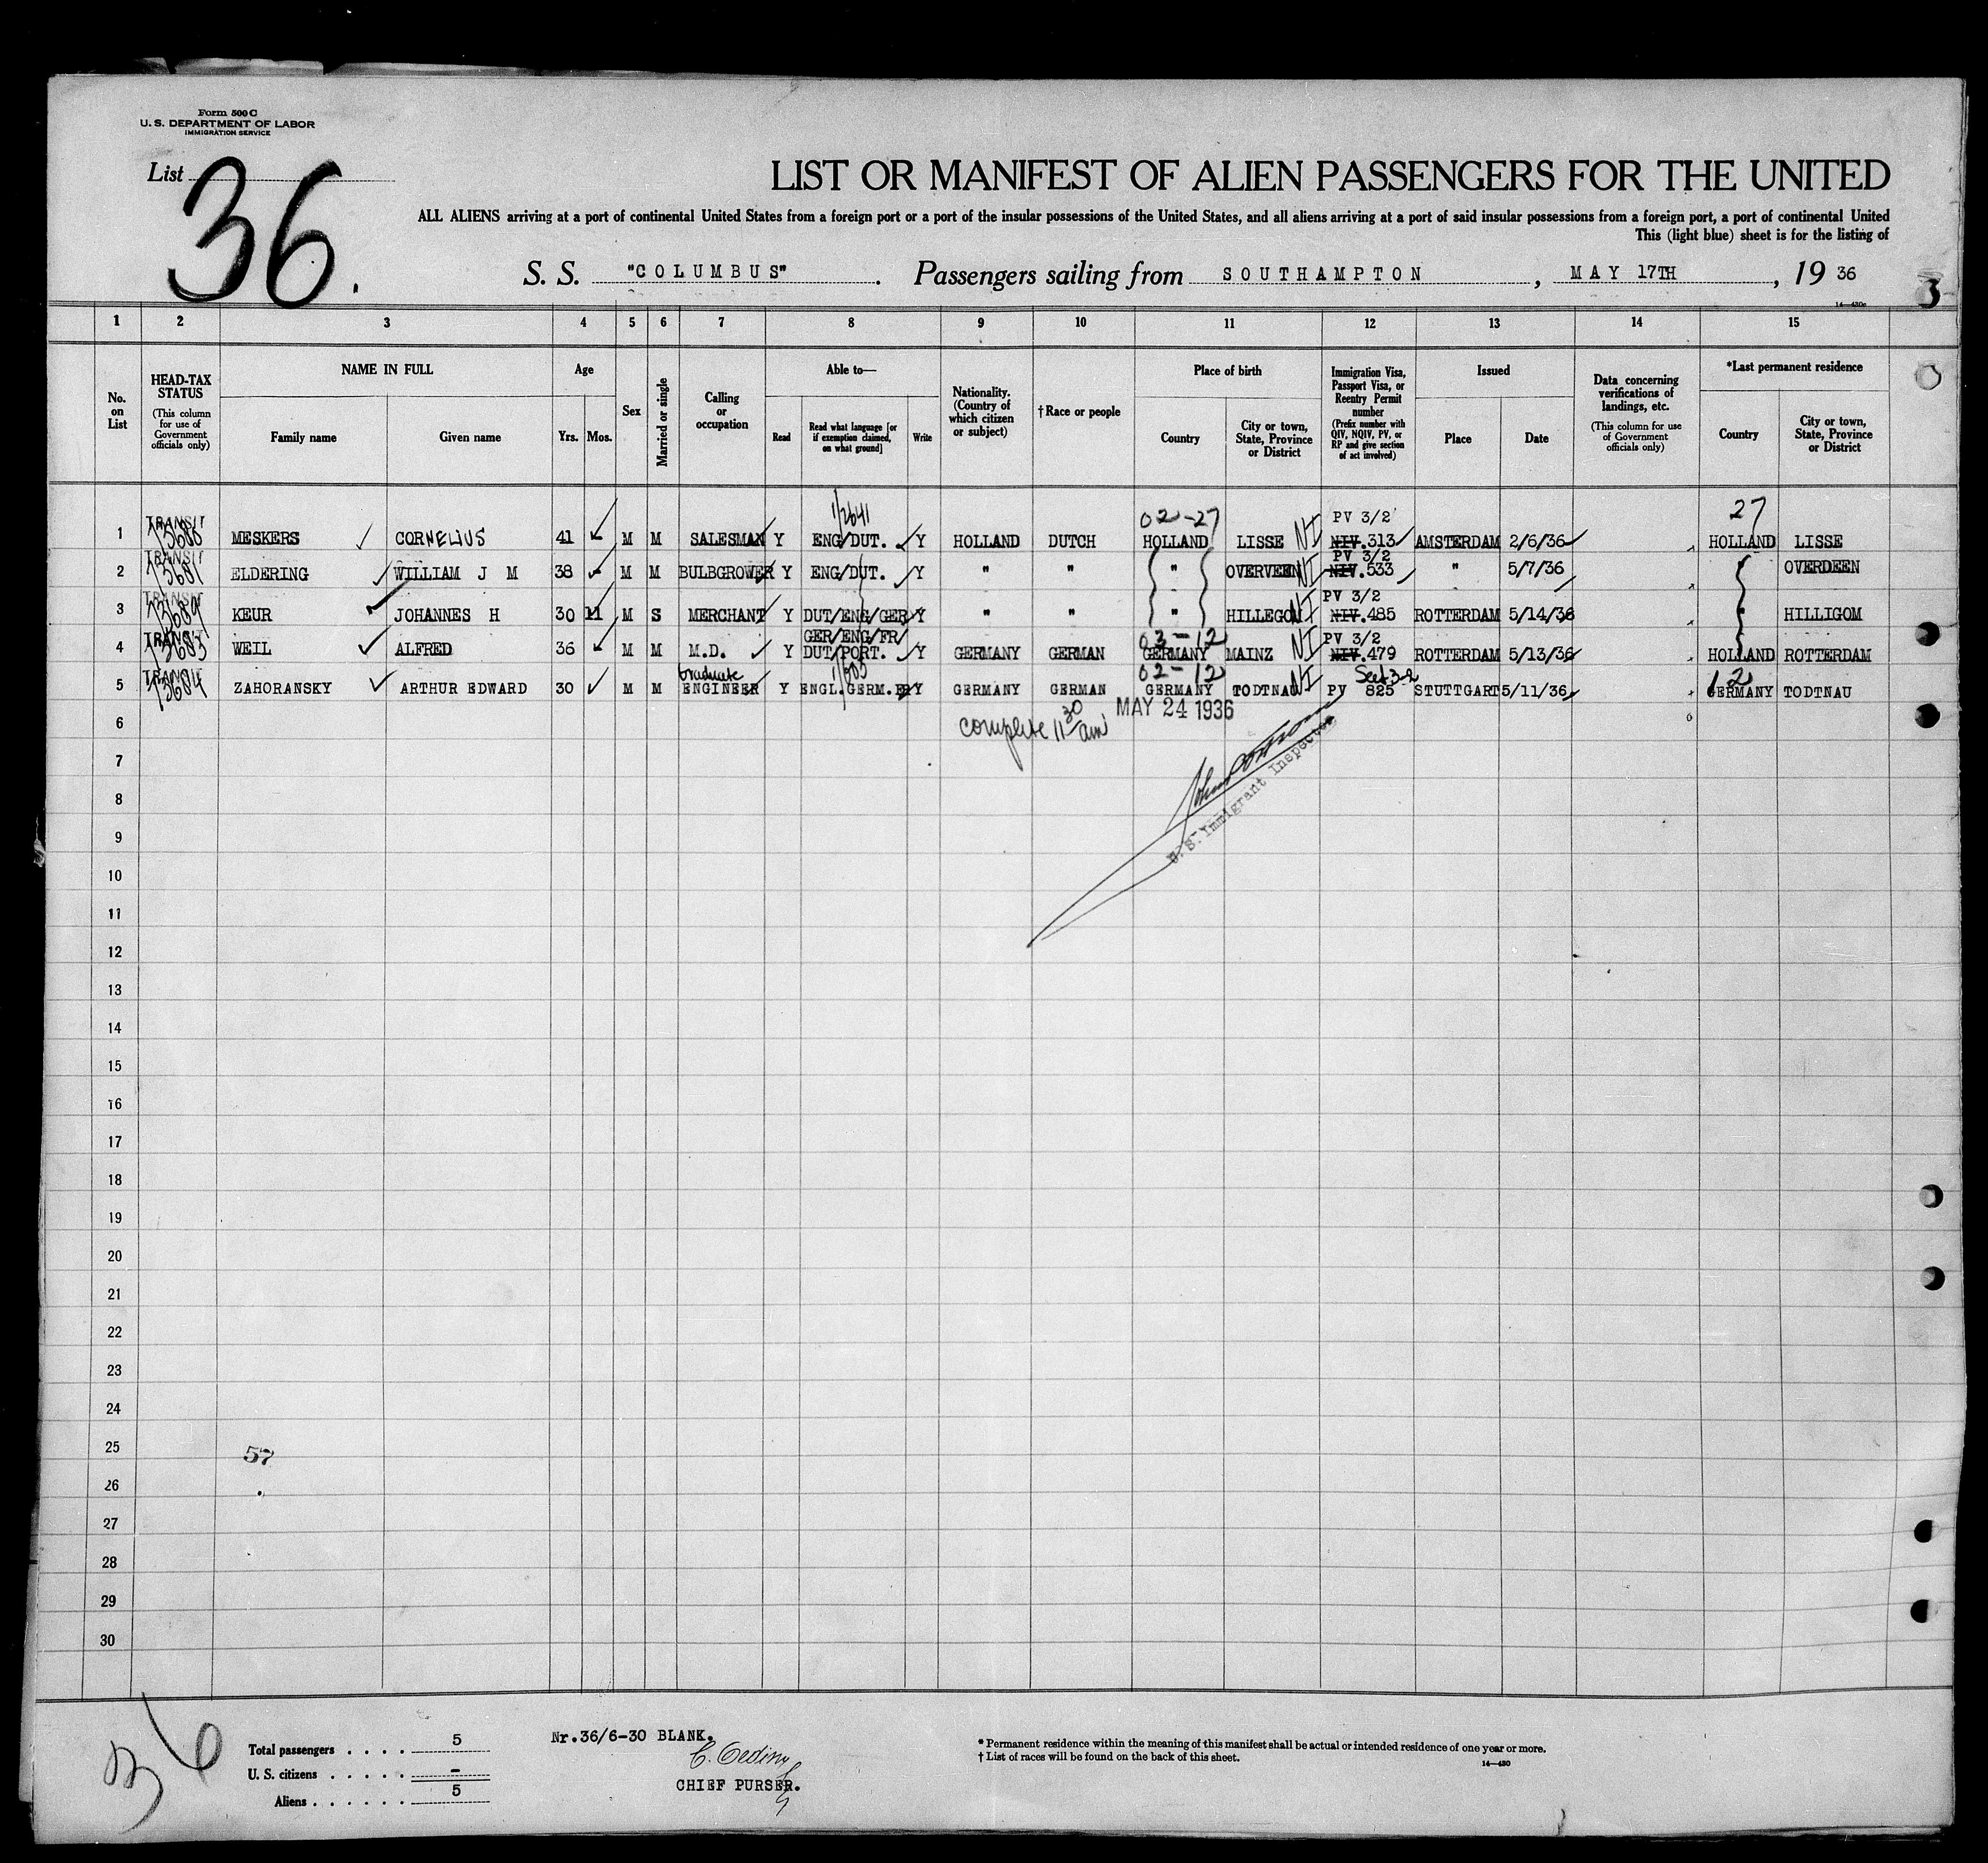 Form 500 C
U. S. DEPARTMENT OF LABOR
IMMIGRATION SERVICE
List 36.
LIST OR MANIFEST OF ALIEN PASSENGERS FOR THE UNITED
ALL ALIENS arriving at a port of continental United States from a foreign port or a port of the insular possessions of the United States, and all aliens arriving at a port of said insular possessions from a foreign port, a port of continental United
This (light blue) sheet is for the listing of
S. S. "COLUMBUS". Passengers sailing from SOUTHAMPTON, MAY 17TH, 19 36
3
14—430c
1 2 3 4 5 6 7 8 9 10 11 12 13 14 15
No. on List
HEAD-TAX STATUS
(This column for use of Government officials only)
NAME IN FULL
Family name
Given name
Age
Yrs. Mos.
Sex
Married or single
Calling or occupation
Able to—
Read
Read what language [or if exemption claimed, on what ground]
Write
Nationality. (Country of which citizen or subject)
† Race or people
Place of birth
Country
City or town, State, Province or District
Immigration Visa, Passport Visa, or Reentry Permit number
(Prefix number with QIV, NQIV, PV, or RP and give section of act involved)
Issued
Place
Date
Data concerning verifications of landings, etc.
(This column for use of Government officials only)
*Last permanent residence
Country
City or town, State, Province or District
1/2641 02-27 PV 3/2 27
1 TRANSIT MESKERS CORNELIUS 41 M M SALESMAN Y ENG/DUT. Y HOLLAND DUTCH HOLLAND LISSE NI NIV.313 AMSTERDAM 2/6/36 HOLLAND LISSE
PV 3/2
2 TRANSIT ELDERING WILLIAM J M 38 M M BULBGROWER Y ENG/DUT. Y " " " OVERVEEN NI NIV.533 " 5/7/36 " OVERDEEN
PV 3/2
3 TRANSIT KEUR JOHANNES H 30 11 M S MERCHANT Y DUT/ENG/GER Y " " " HILLEGOM NI NIV.485 ROTTERDAM 5/14/36 " HILLIGOM
GER/ENG/FR/ 03-12 PV 3/2
4 TRANSIT WEIL ALFRED 36 M M M.D. Y DUT/PORT. Y GERMANY GERMAN GERMANY MAINZ NI NIV.479 ROTTERDAM 5/13/36 HOLLAND ROTTERDAM
Graduate 02-12 Sect 3-2 12
5 TRANSIT ZAHORANSKY ARTHUR EDWARD 30 M M ENGINEER Y ENGL.GERM.FR Y GERMANY GERMAN GERMANY TODTNAU NI PV 825 STUTTGART 5/11/36 GERMANY TODTNAU
6 complete 11 30 am MAY 24 1936
7
8
U. S. Immigrant Inspector
9
10
11
12
13
14
15
16
17
18
19
20
21
22
23
24
25 57
26
27
28
29
30
36
Total passengers . . . . 5
U. S. citizens . . . . . -
Aliens . . . . . . 5
Nr.36/6-30 BLANK.
CHIEF PURSER.
* Permanent residence within the meaning of this manifest shall be actual or intended residence of one year or more.
† List of races will be found on the back of this sheet.
14—430